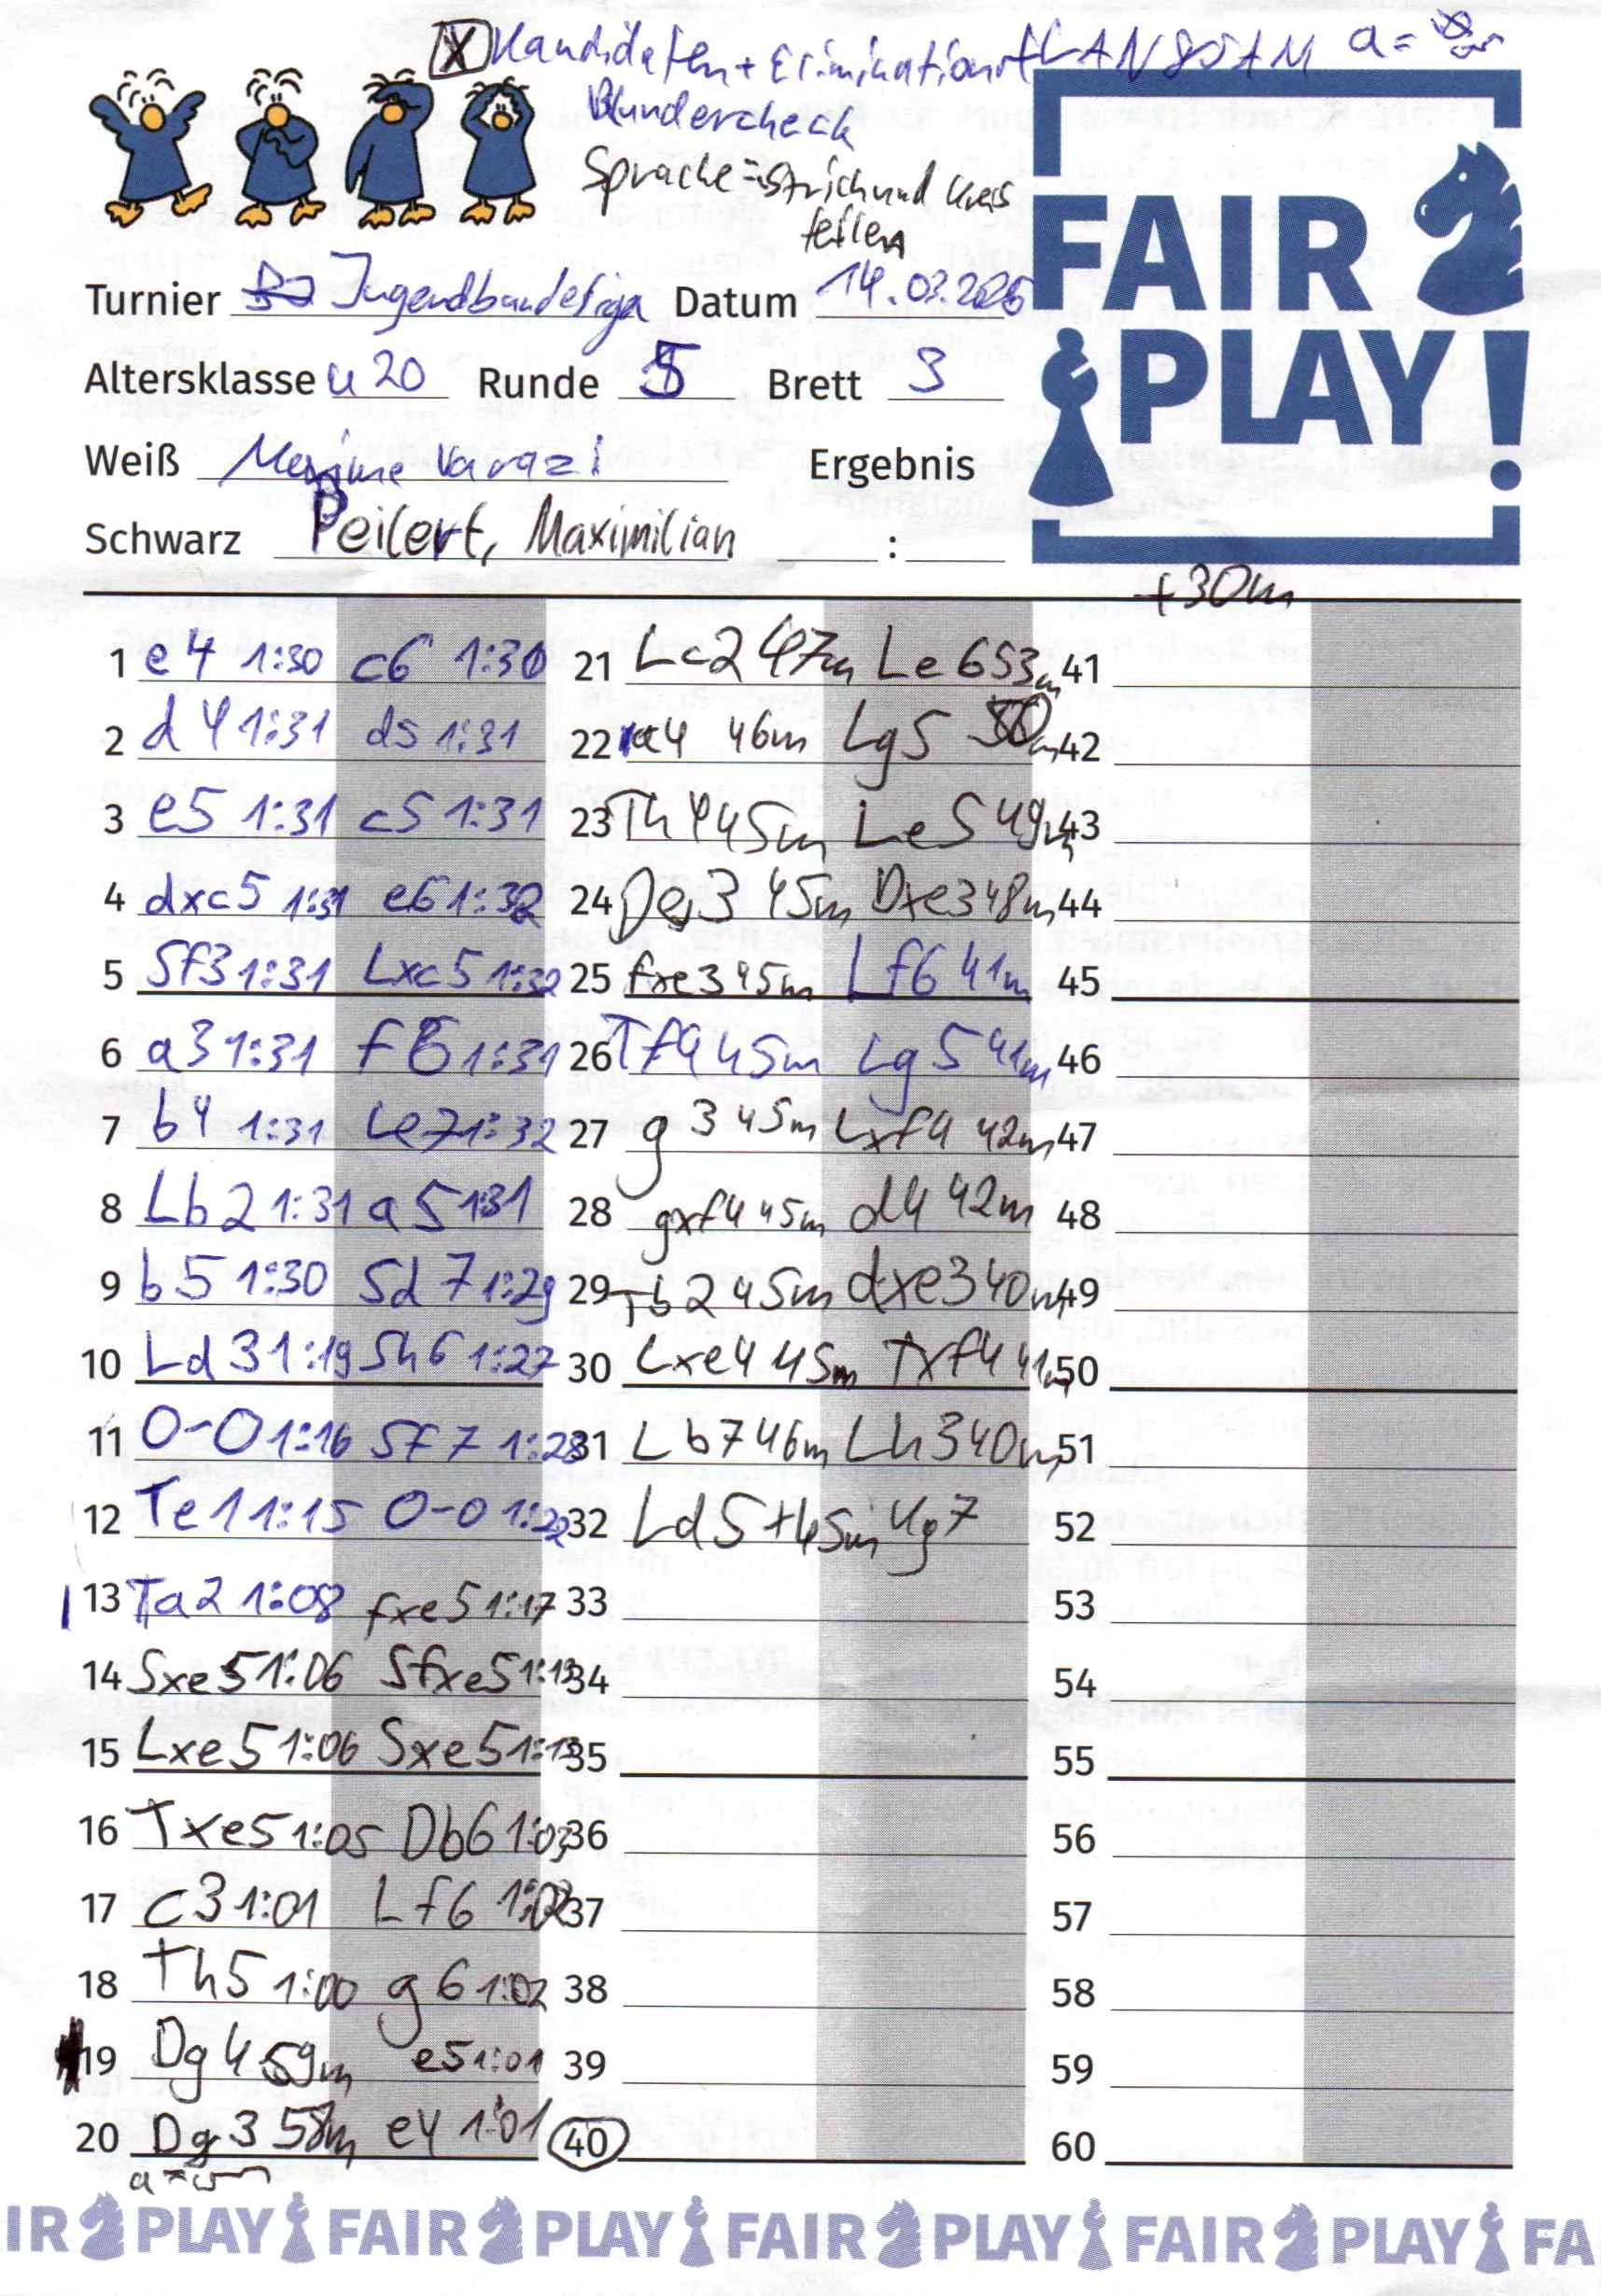 X Kandidaten + Elimination + LANGSAM a =
Blundercheck
Sprache = Strich und Kreis
teilen
FAIR
PLAY!
Turnier Jugendbundesliga Datum 14.03.2026
Altersklasse u20 Runde 5 Brett 3
Weiß Varazi Ergebnis
Schwarz Peilert, Maximilian :
+30m
1 e4 1:30 c6 1:30 21 Lc2 47m Le6 53m 41
2 d4 1:31 d5 1:31 22 a4 46m Lg5 50m 42
3 e5 1:31 c5 1:31 23 Th4 45m Le5 49m 43
4 dxc5 1:31 e6 1:32 24 De3 45m Dxe3 48m 44
5 Sf3 1:31 Lxc5 1:32 25 fxe3 45m Lf6 41m 45
6 a3 1:31 f6 1:31 26 Tf4 45m Lg5 41m 46
7 b4 1:31 Le7 1:32 27 g3 45m Lxf4 42m 47
8 Lb2 1:31 a5 1:31 28 gxf4 45m d4 42m 48
9 b5 1:30 Sd7 1:29 29 Tb2 45m dxe3 40m 49
10 Ld3 1:19 Sh6 1:27 30 Lxe4 45m Txf4 41m 50
11 0-0 1:16 Sf7 1:28 31 Lb7 46m Lh3 40m 51
12 Te1 1:15 0-0 1:22 32 Ld5+ 45m Kg7 52
13 Ta2 1:08 fxe5 1:17 33 53
14 Sxe5 1:06 Sfxe5 1:13 34 54
15 Lxe5 1:06 Sxe5 1:13 35 55
16 Txe5 1:05 Db6 1:03 36 56
17 c3 1:01 Lf6 1:02 37 57
18 Th5 1:00 g6 1:02 38 58
19 Dg4 59m e5 1:01 39 59
20 Dg3 58m e4 1:01 40 60
IR PLAY FAIR PLAY FAIR PLAY FAIR PLAY FA